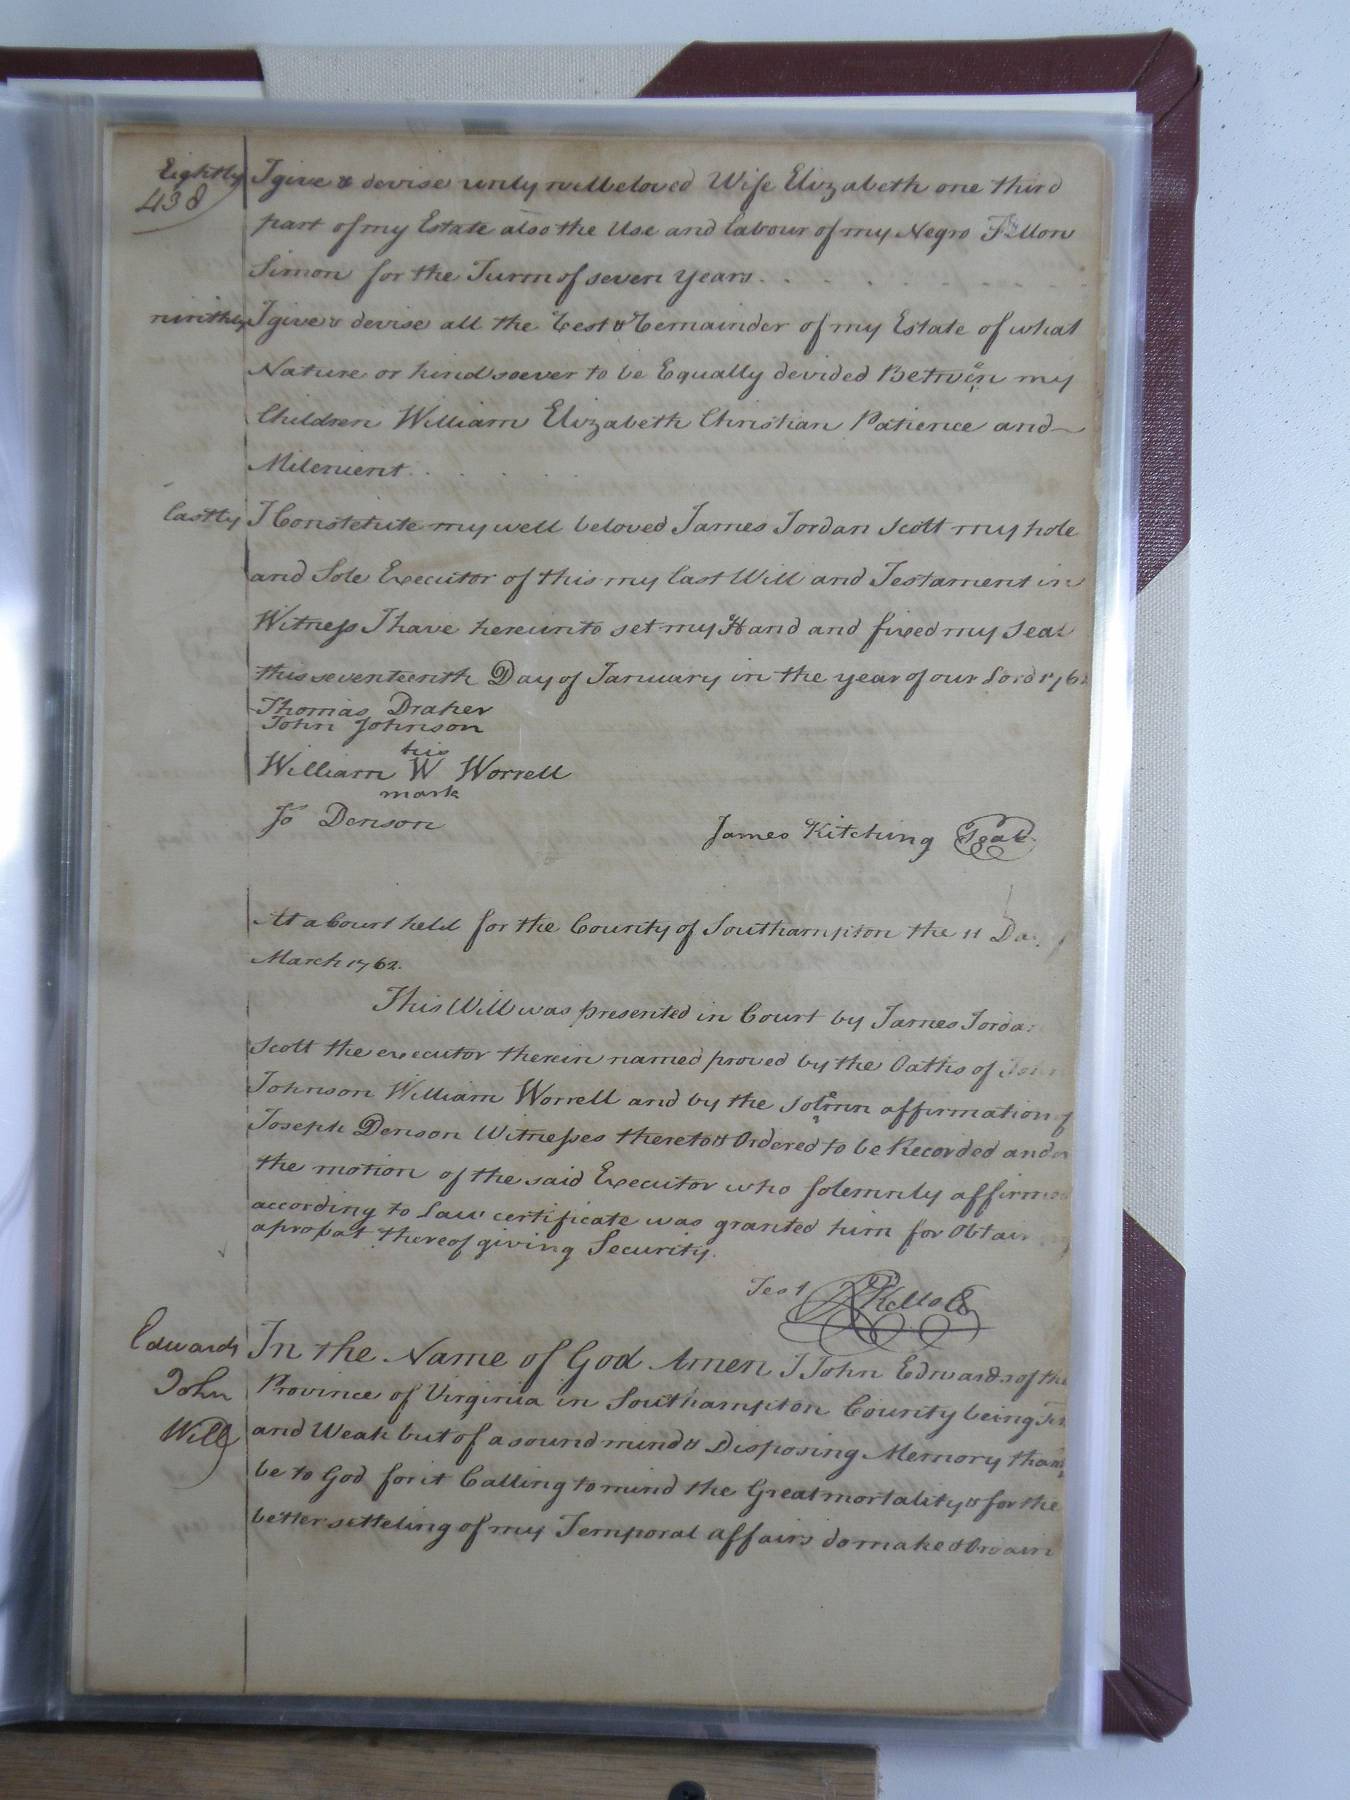 Eightly I give & devise unty wellbeloved Wife Elizabeth one third
438
part of my Estate also the Use and labour of my Negro Fellow
Simon for the Turm of seven years . . . . . . .
ninthly I give & devise all the Rest & Remainder of my Estate of what
Nature or kind soever to be Equally devided Between my
Children William Elizabeth Christian Patience and
Milenient . . . . .
lastly I Constetute my well beloved James Jordan Scott my hole
and Sole Executor of this my last Will and Testament in
Witness I have hereunto set my Hand and fixed my Seal
this seventeenth Day of January in the year of our Lord 1762
Thomas Draker
John Johnson
his
William W Worrell
mark
Jo Denson
James Kitching Seal
At a Court held for the County of Southampton the 11 Day
March 1762.
This Will was presented in Court by James Jordan
Scott the executor therein named proved by the Oaths of John
Johnson William Worrell and by the solemn affirmation of
Joseph Denson Witnesses thereto & Ordered to be Recorded and on
the motion of the said Executor who solemnly affirmed
according to law certificate was granted him for Obtaining
a probat thereof giving Security.
Test R Kello C
Edwards In the Name of God Amen I John Edwards of the
John Province of Virginia in Southampton County being
Will and Weak but of a sound mind & Disposing Memory thanks
be to God for it Calling to mind the Great mortality & for the
better setteling of my Temporal affairs do make & Ordain